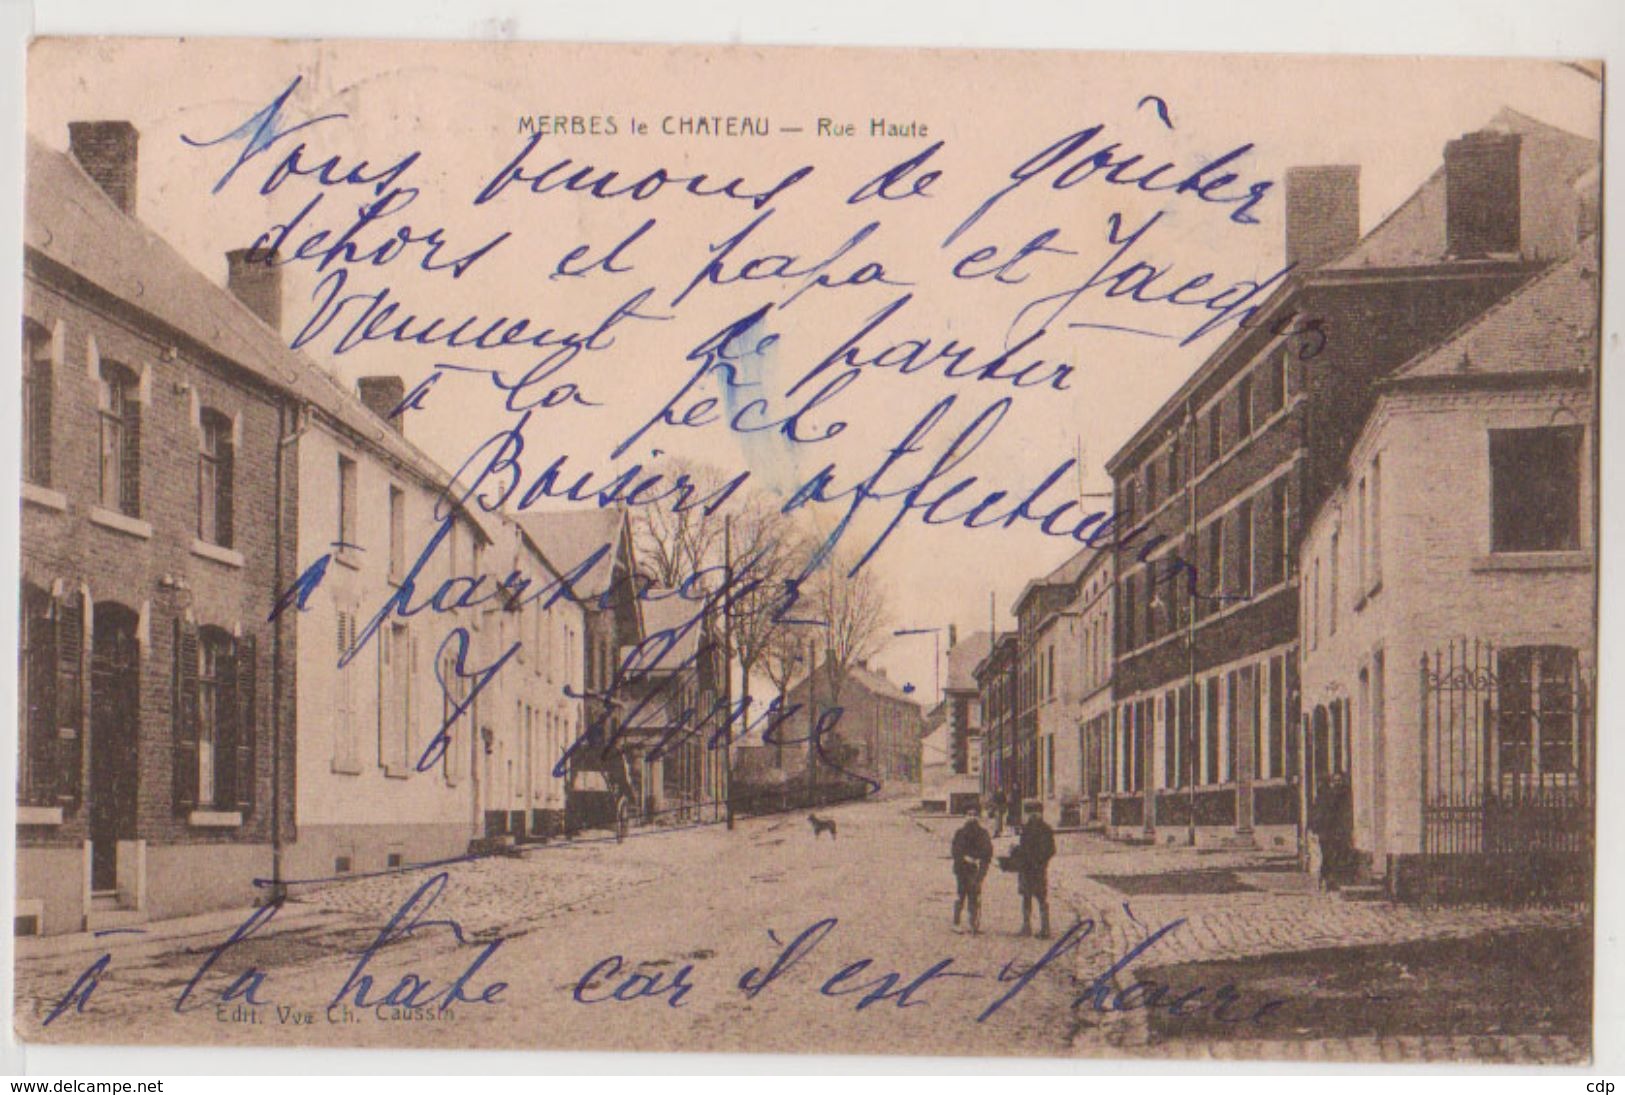 MERBES le CHATEAU — Rue Haute
Nous venons de goûter
dehors et papa et Jacques
viennent de partir
à la pêche
Baisers affectueux
à partager
à la hâte car il est 4 heure
Edit. Vve Ch. Caussin
www.delcampe.net
cdp